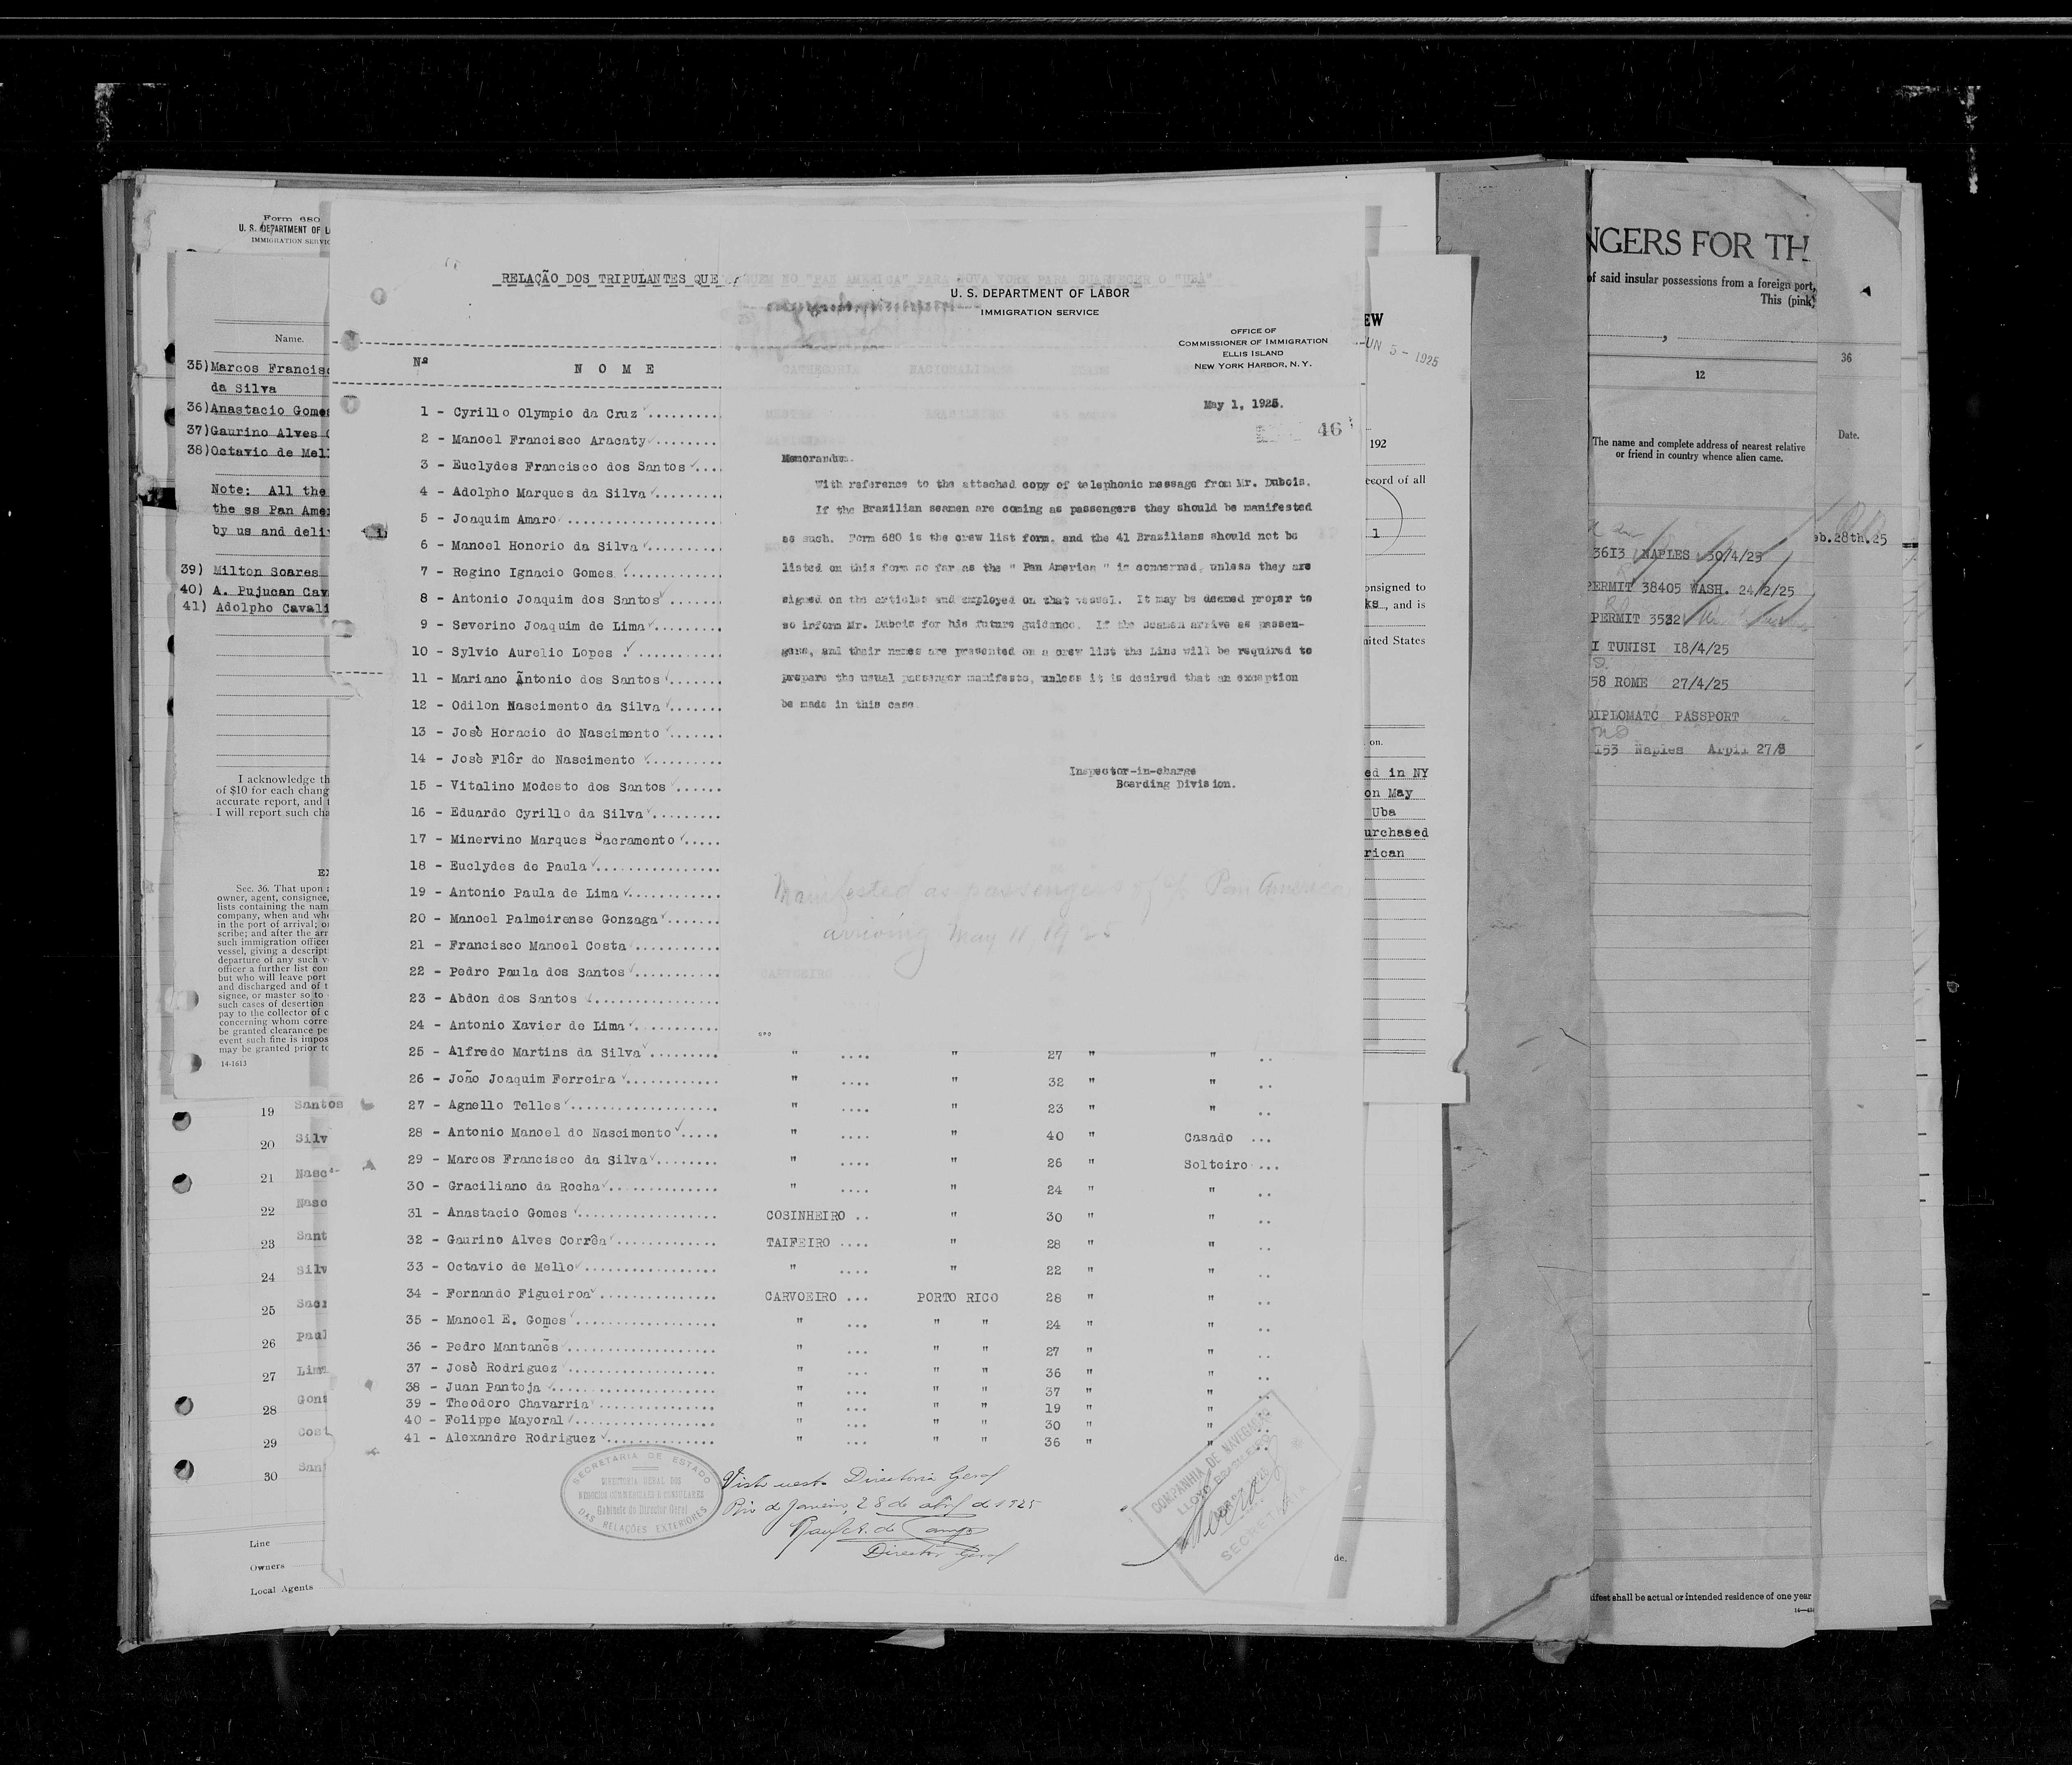 Form 680
U. S. DEPARTMENT OF L
IMMIGRATION SERVIC
Name.
35)Marcos Francisc
da Silva
36)Anastacio Gomes
37)Gaurino Alves C
38)Octavio de Mell
Note: All the
the ss Pan Amer
by us and deli
39) Milton Soares
40) A. Pujucan Cav
41) Adolpho Cavali
I acknowledge th
of $10 for each chang
accurate report, and t
I will report such cha
Sec. 36. That upon a
owner, agent, consignee,
lists containing the nam
company, when and whe
in the port of arrival; o
scribe; and after the arr
such immigration officer
vessel, giving a descripti
departure of any such v
officer a further list con
but who will leave port
and discharged and of t
signee, or master so to
such cases of desertion
pay to the collector of c
concerning whom corre
be granted clearance pe
event such fine is impos
may be granted prior to
14-1613
19 Santos
20 Silv
21 Nasc
22 Nasc
23 Sant
24 Silv
25 Sacr
26 Paul
27 Lima
28 Gonz
29 Cost
30 San
Line
Owners
Local Agents
RELAÇÃO DOS TRIPULANTES QUE SEGUEM NO "PAN AMERICA" PARA NOVA YORK PARA GUARNECER O "UBÁ"
Nº NOME
CATHEGORIA NACIONALIDADE
1 - Cyrillo Olympio da Cruz
2 - Manoel Francisco Aracaty
3 - Euclydes Francisco dos Santos
4 - Adolpho Marques da Silva
5 - Joaquim Amaro
6 - Manoel Honorio da Silva
7 - Regino Ignacio Gomes
8 - Antonio Joaquim dos Santos
9 - Severino Joaquim de Lima
10 - Sylvio Aurelio Lopes
11 - Mariano Antonio dos Santos
12 - Odilon Nascimento da Silva
13 - Josè Horacio do Nascimento
14 - Josè Flôr do Nascimento
15 - Vitalino Modesto dos Santos
16 - Eduardo Cyrillo da Silva
17 - Minervino Marques Sacramento
18 - Euclydes de Paula
19 - Antonio Paula de Lima
20 - Manoel Palmeirense Gonzaga
21 - Francisco Manoel Costa
22 - Pedro Paula dos Santos
23 - Abdon dos Santos
24 - Antonio Xavier de Lima
25 - Alfredo Martins da Silva " .... " 27 " " ..
26 - João Joaquim Ferreira " .... " 32 " " ..
27 - Agnello Telles " .... " 23 " " ..
28 - Antonio Manoel do Nascimento " .... " 40 " Casado ...
29 - Marcos Francisco da Silva " .... " 26 " Solteiro ...
30 - Graciliano da Rocha " .... " 24 " " ..
31 - Anastacio Gomes COSINHEIRO .. " 30 " " ..
32 - Gaurino Alves Corrêa TAIFEIRO .... " 28 " " ..
33 - Octavio de Mello " .... " 22 " " ..
34 - Fernando Figueiroa CARVOEIRO ... PORTO RICO 28 " " ..
35 - Manoel E. Gomes " ... " " 24 " " ..
36 - Pedro Mantañes " ... " " 27 " " ..
37 - Josè Rodriguez " ... " " 36 " " ..
38 - Juan Pantoja " ... " " 37 " " ..
39 - Theodoro Chavarria " ... " " 19 " " ..
40 - Felippe Mayoral " ... " " 30 " " ..
41 - Alexandre Rodriguez " ... " " 36 " " ..
SECRETARIA DE ESTADO
DIRECTORIA GERAL DOS
NEGOCIOS COMMERCIAES E CONSULARES
Gabinete do Director Geral
DAS RELAÇÕES EXTERIORES
Visto nesta Directoria Geral
Rio de Janeiro, 28 de abril de 1925
Director Geral
COMPANHIA DE NAVEGAÇÃO
LLOYD BRASILEIRO
SECRETARIA
U. S. DEPARTMENT OF LABOR
IMMIGRATION SERVICE
OFFICE OF
COMMISSIONER OF IMMIGRATION
ELLIS ISLAND
NEW YORK HARBOR, N. Y.
May 1, 1925.
46
Memorandum.
With reference to the attached copy of telephonic message from Mr. Dubois.
If the Brazilian seamen are coming as passengers they should be manifested
as such. Form 680 is the crew list form, and the 41 Brazilians should not be
listed on this form so far as the " Pan America " is concerned, unless they are
signed on the articles and employed on that vessel. It may be deemed proper to
so inform Mr. Dubois for his future guidance. If the seamen arrive as passen-
gers, and their names are presented on a crew list the Line will be required to
prepare the usual passenger manifests, unless it is desired that an exception
be made in this case.
Inspector-in-charge
Boarding Division.
Manifested as passengers of Pan America
arriving May 11 1925
CARVOEIRO ....
EW
UN 5 - 1925
192
ecord of all
1
onsigned to
ks., and is
nited States
on.
ed in NY
on May
Uba
urchased
rican
de.
NGERS FOR TH
of said insular possessions from a foreign port,
This (pink)
12
The name and complete address of nearest relative
or friend in country whence alien came.
3613 NAPLES 30/4/25
PERMIT 38405 WASH. 24/2/25
PERMIT 3532
I TUNISI 18/4/25
58 ROME 27/4/25
DIPLOMATC PASSPORT
153 Naples Arpil 27/8
ifest shall be actual or intended residence of one year
36
Date.
eb.28th.25